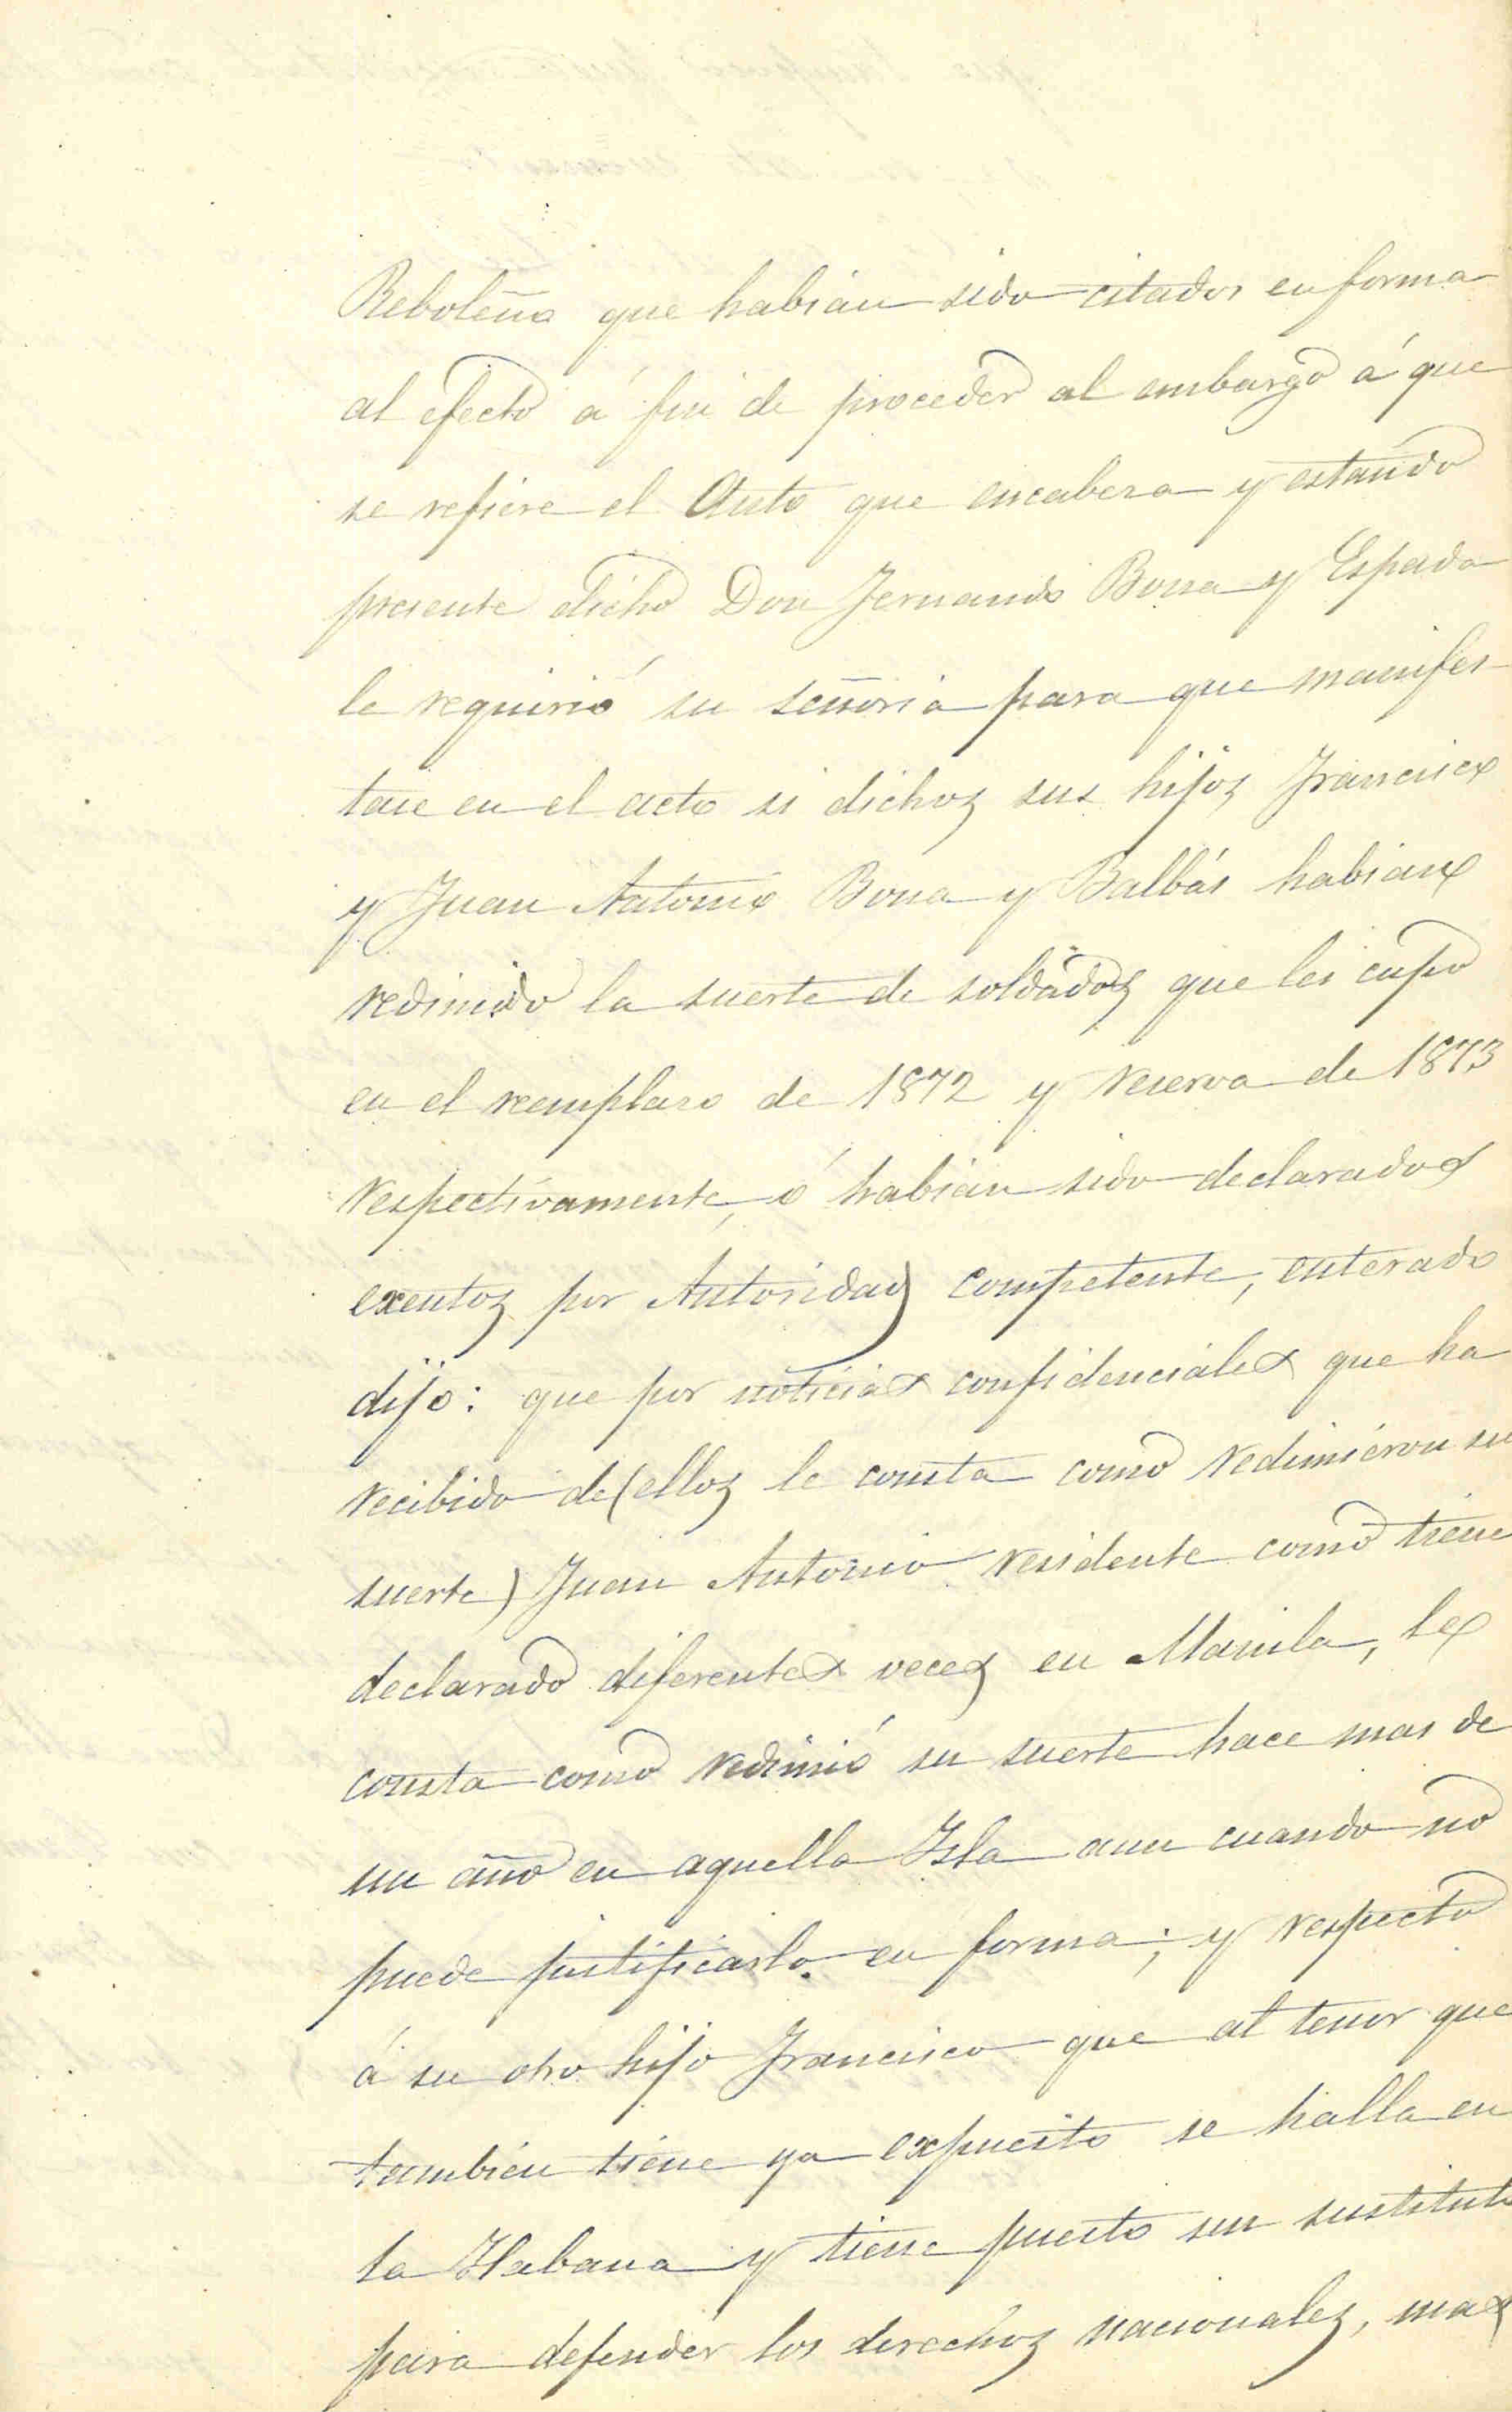 Reboleña que habian sido citados en forma
al efecto á fin de proceder al embargo á que
se refiere el Auto que encabeza y estando
presente dicho Don Fernando Bona y Espada
le requirió su señoria para que manifes-
tase en el acto si dichos sus hijos Francisco
y Juan Antonio Bona y Balbás habian
redimido la suerte de soldados que les cupo
en el reemplazo de 1872 y reserva de 1873
respectivamente, ó habian sido declarados
exentos por Autoridad competente, enterado
dijo: que por noticias confidenciales que ha
recibido de (ellos le consta como redimiéron su
suerte) Juan Antonio residente como tiene
declarado diferentes veces en Manila, le
consta como redimió su suerte hace mas de
un año en aquella Isla aun cuando no
puede justificarlo en forma; y respecto
á su otro hijo Francisco que al tenor que
tambien tiene ya expuesto se halla en
la Habana y tiene puesto un sustituto
para defender los derechos nacionales, mas